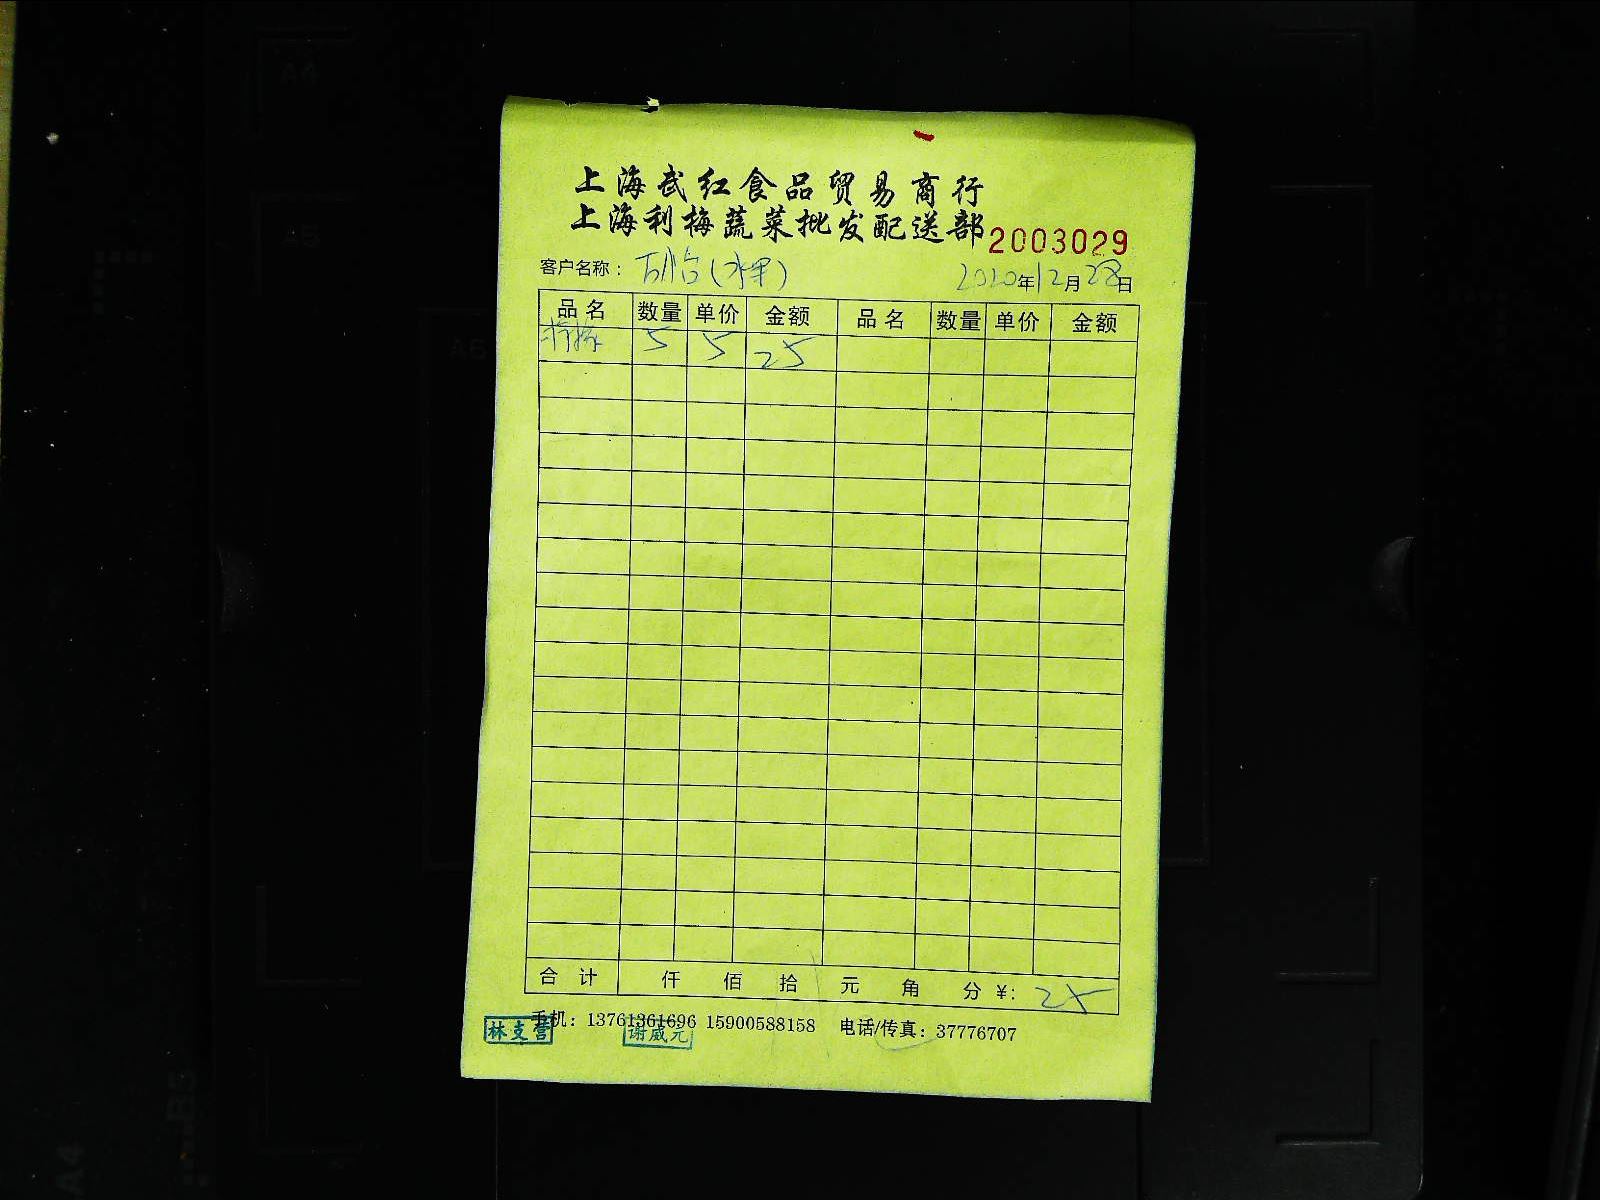 上海武红食品贸易商行
上海利梅蔬菜批发配送部 2003029
客户名称： (水果) 2020年12月28日
品名 数量 单价 金额 品名 数量 单价 金额
5 5 25
合计 仟 佰 拾 元 角 分 ¥: 25
手机: 13761361696 15900588158 电话/传真: 37776707
林支营 谢威元
A4
A5
A5
B5
A4